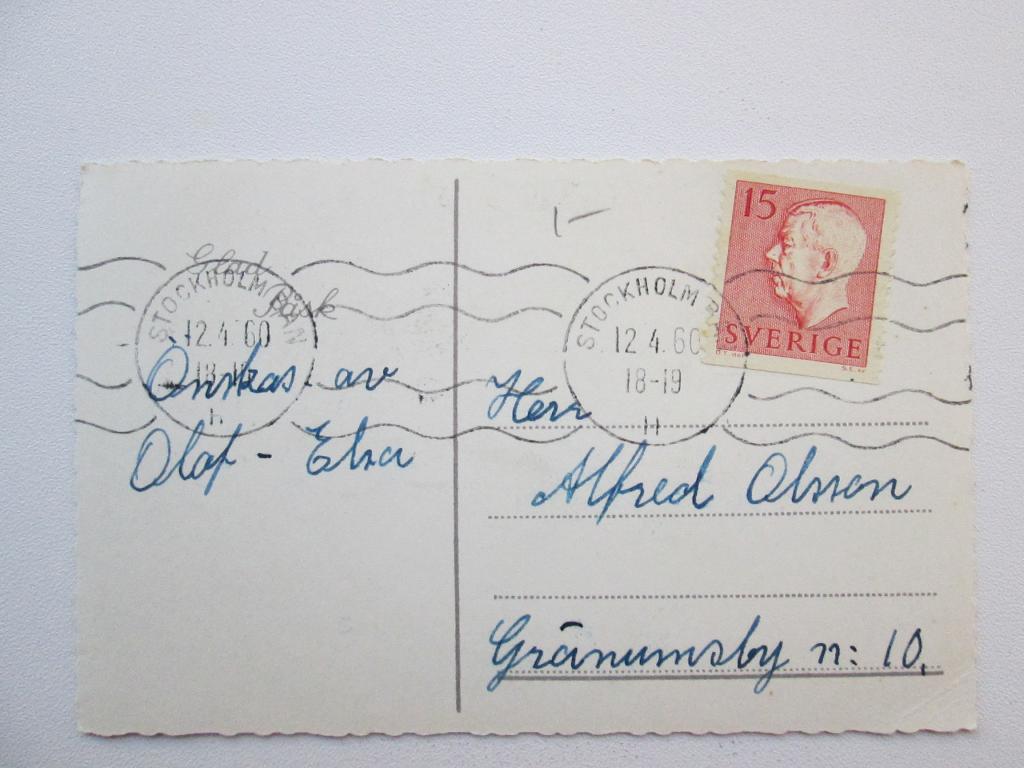 Glad
Påsk
STOCKHOLM BAN
12.4.60
18-19
H
Önskas av
Olof - Elsa
15
SVERIGE
STOCKHOLM BAN
12.4.60
18-19
H
Herr
Alfred Olsson
Gränumsby n: 10.